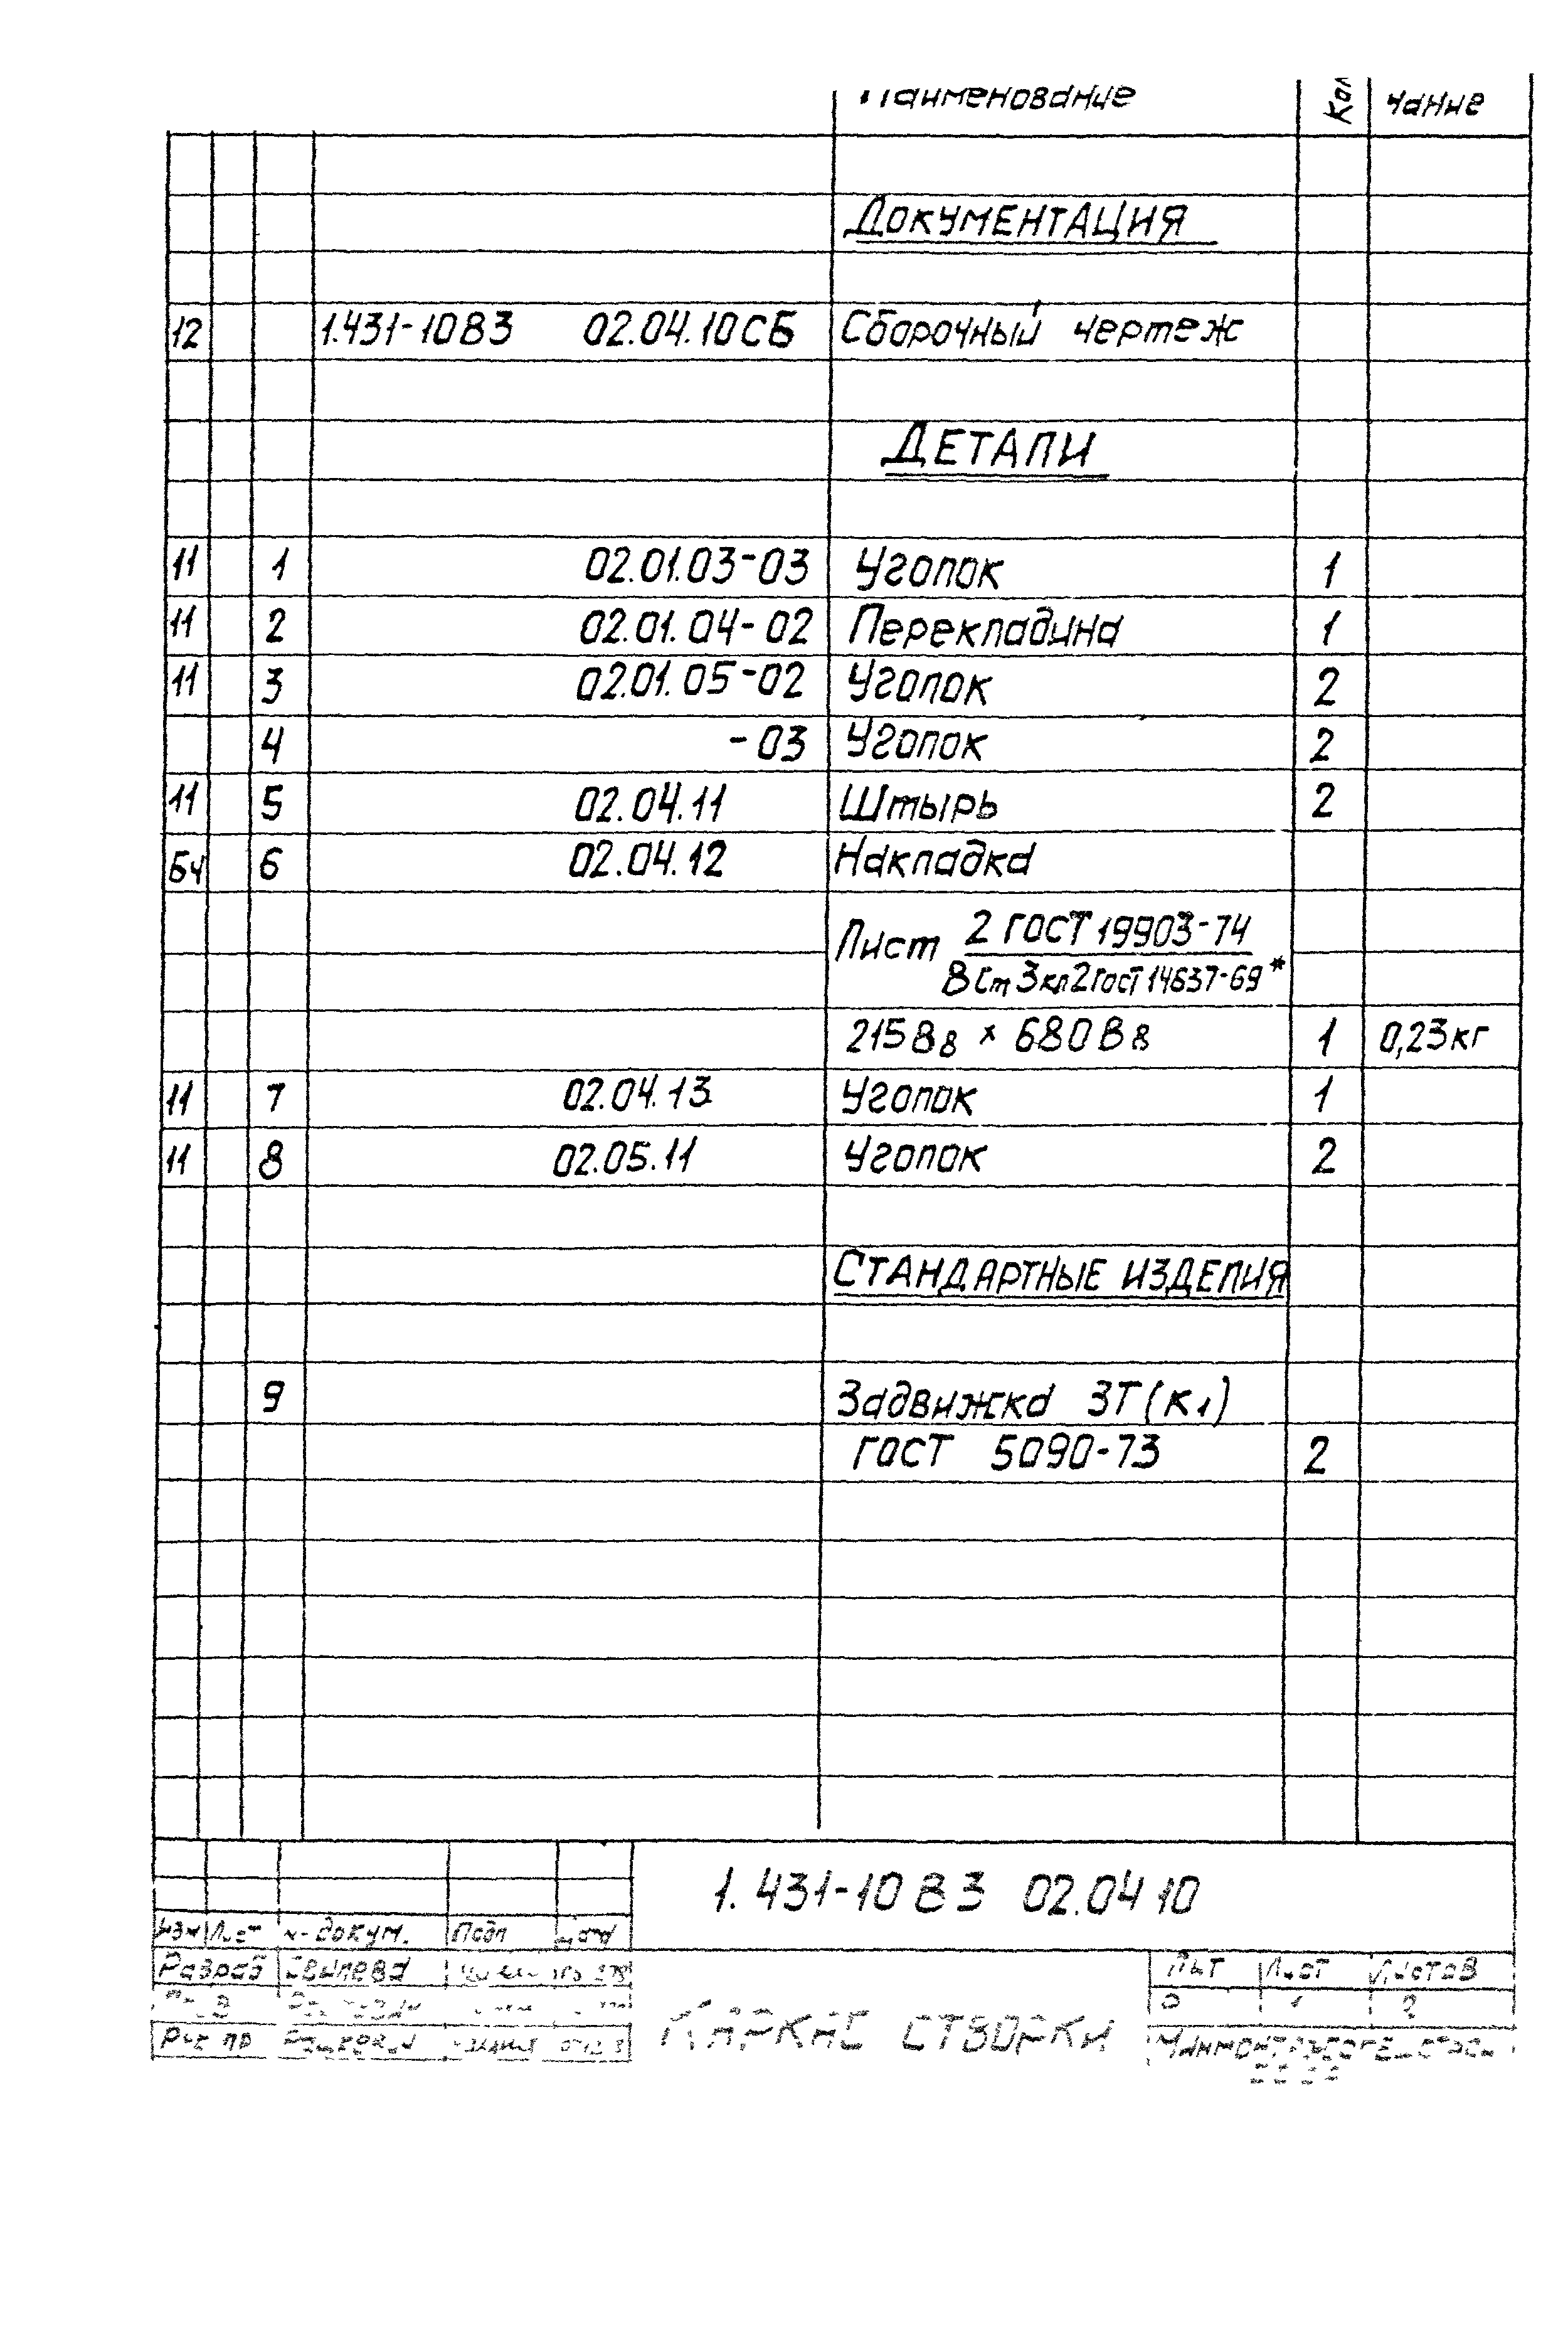 Наименование Кол чание
Документация
12 1.431-10 В3 02.04.10СБ Сборочный чертеж
Детали
11 1 02.01.03-03 Уголок 1
11 2 02.01.04-02 Перекладина 1
11 3 02.01.05-02 Уголок 2
4 -03 Уголок 2
11 5 02.04.11 Штырь 2
БЧ 6 02.04.12 Накладка
Лист 2 ГОСТ 19903-74
ВСт3кп2 ГОСТ 14637-69*
215В8 × 680В8 1 0,23кг
11 7 02.04.13 Уголок 1
11 8 02.05.11 Уголок 2
Стандартные изделия
9 Задвижка ЗТ(К1)
ГОСТ 5090-73 2
1.431-10 В3 02.04 10
Изм Лист № докум. Подп Дата
Разраб
Каркас створки
Лит Лист Листов
Р 1
Рук пр